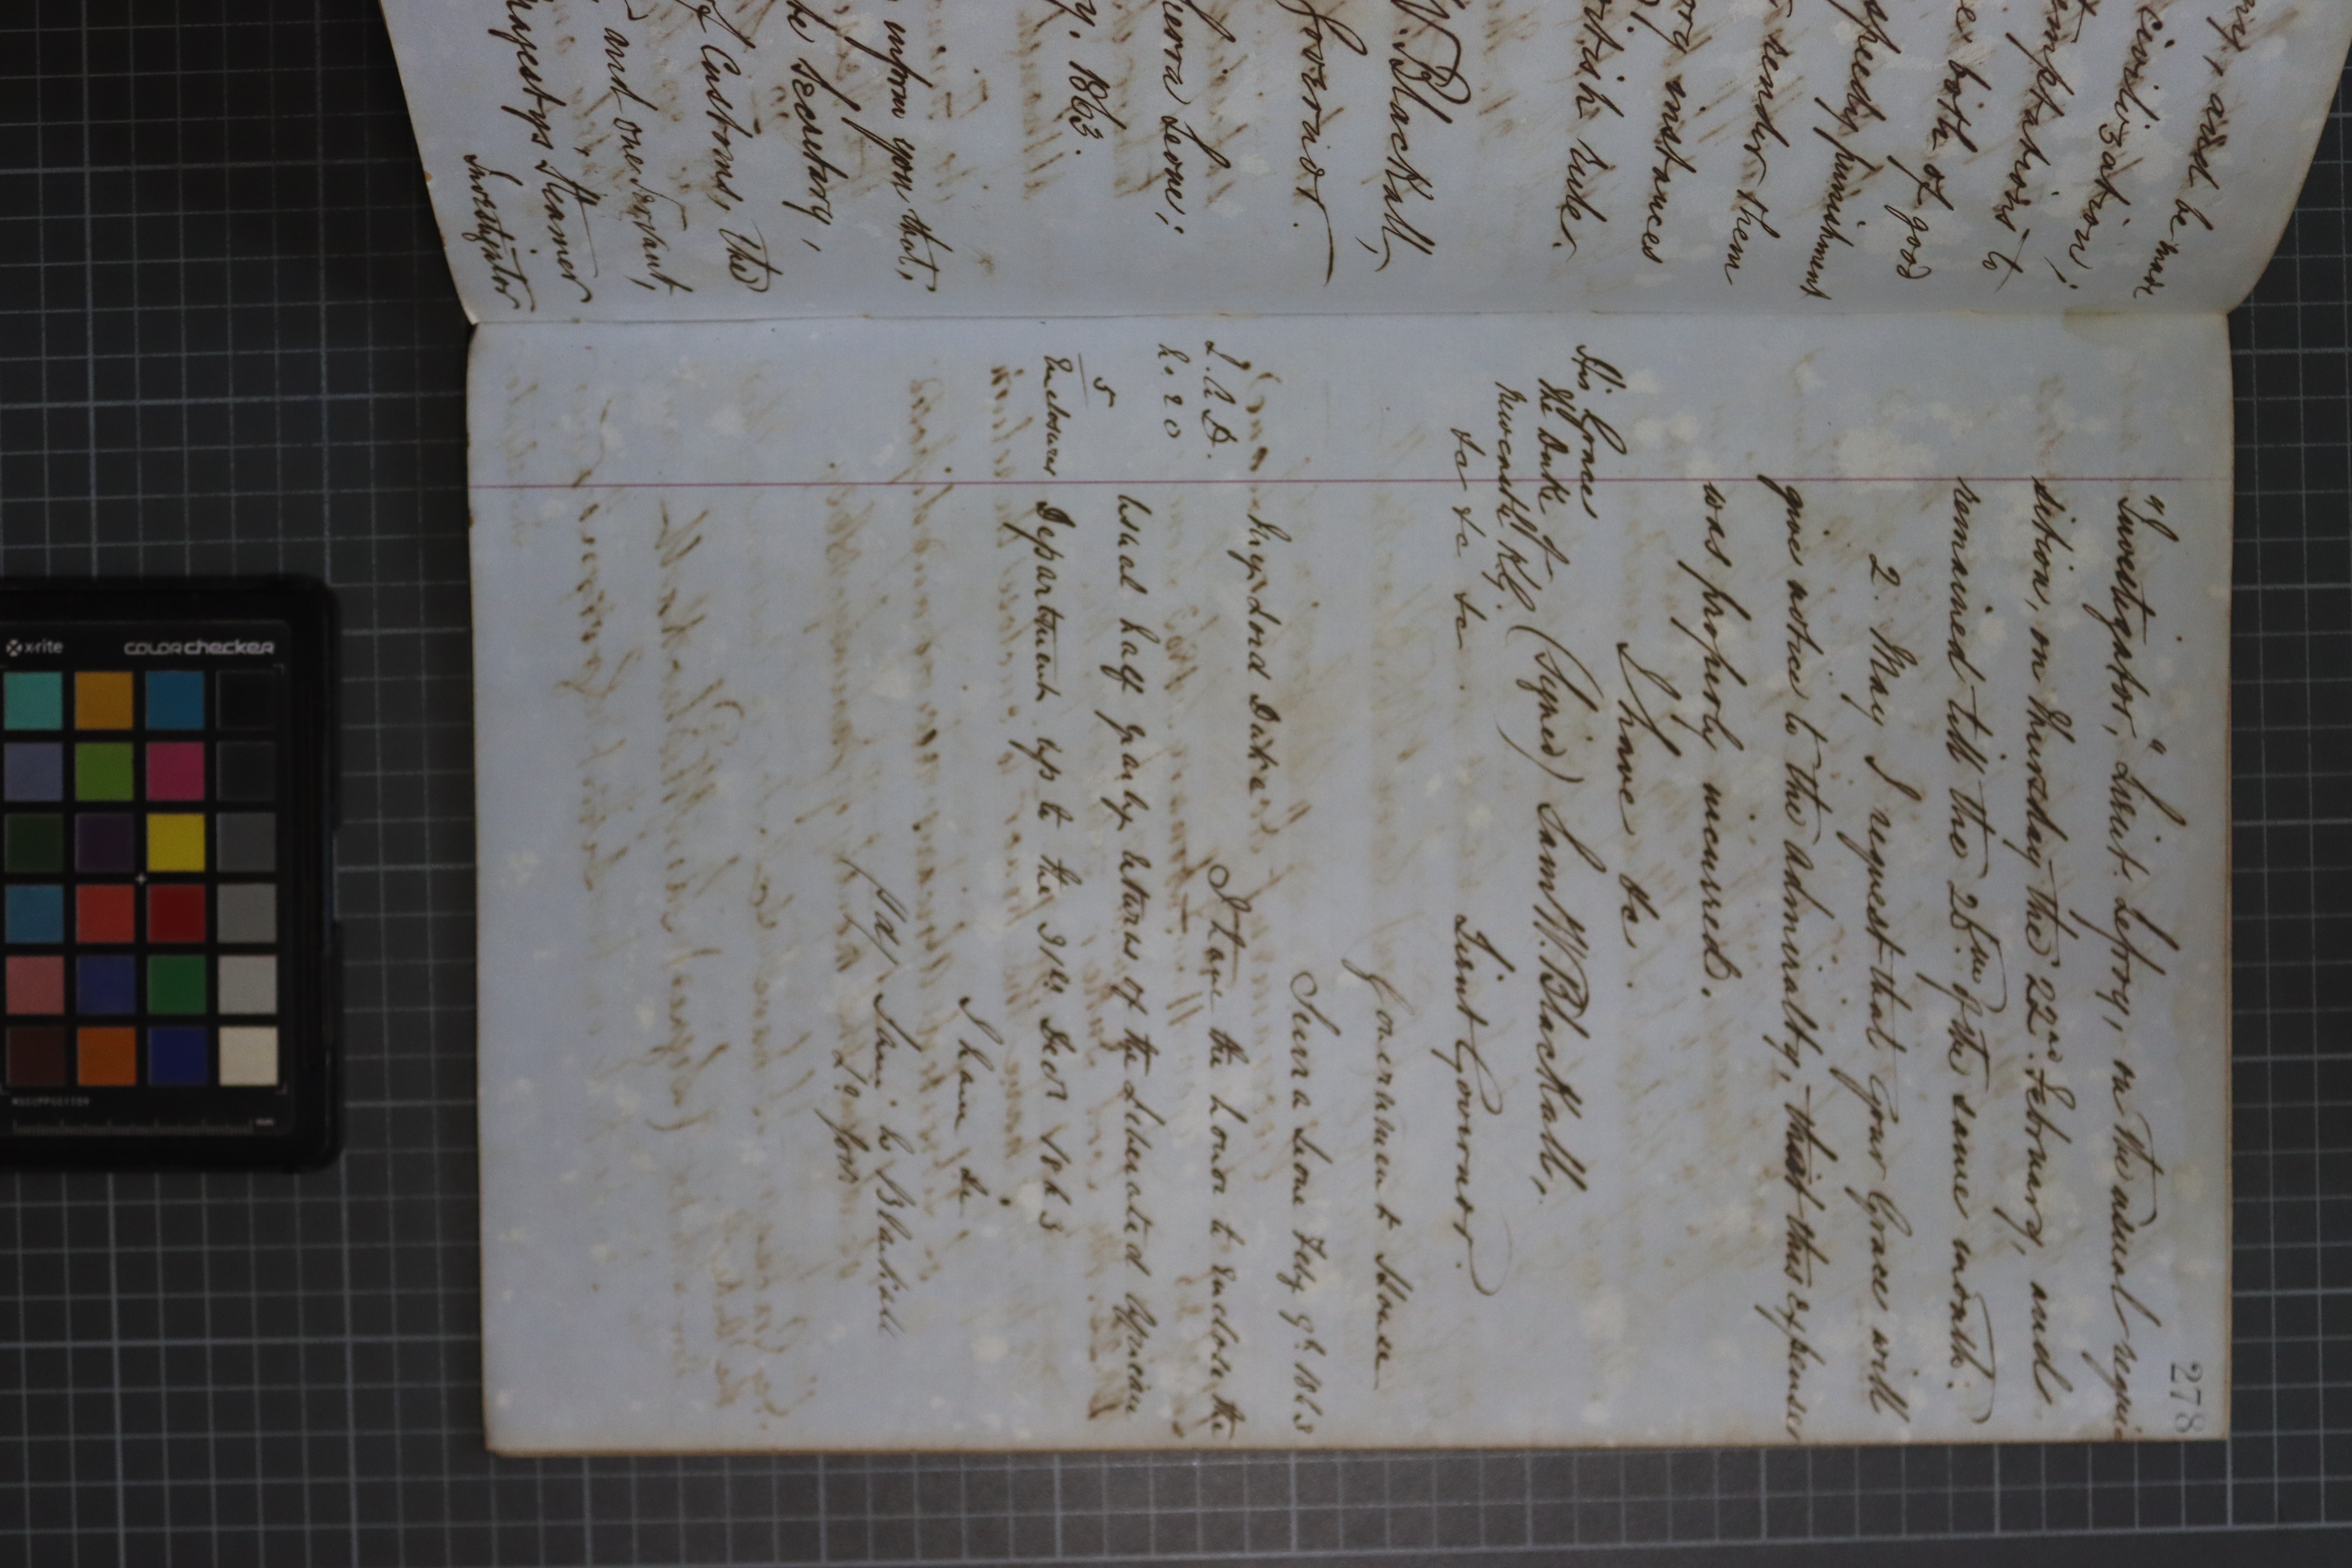 ry, and be made
civilization;
temptations to
er both of good
speedy punishment
render them
ory instances
British rule.
W. Blackall,
Governor.
Sierra Leone;
y. 1863.
inform you that,
he Secretary,
of Customs, the
and one servant,
Majestys Steamer
Investigator
278
"Investigator," Lieut. Lefroy, on the usual requi-
sition, on Thursday the 22nd. February, and
remained till the 25th of the same month.
2. May I request that Your Grace will
give notice to the Admiralty, that this expenses
was properly incurred.
I have &c.
(Signed) Saml W. Blackall,
Lieut Governor.
His Grace
The Duke of
Newcastle K.G.
&c &c &c
Government House
Sierra Leone Feby 9th 1863
My Lord Duke
I have the honor to enclose the
usual half yearly returns of the Liberated African
Department up to the 31st Decr 1863
I have &c
Saml W Blackall
Lt Govr
L. A. D.
No. 20
5
Enclosures
x-rite
colorchecker